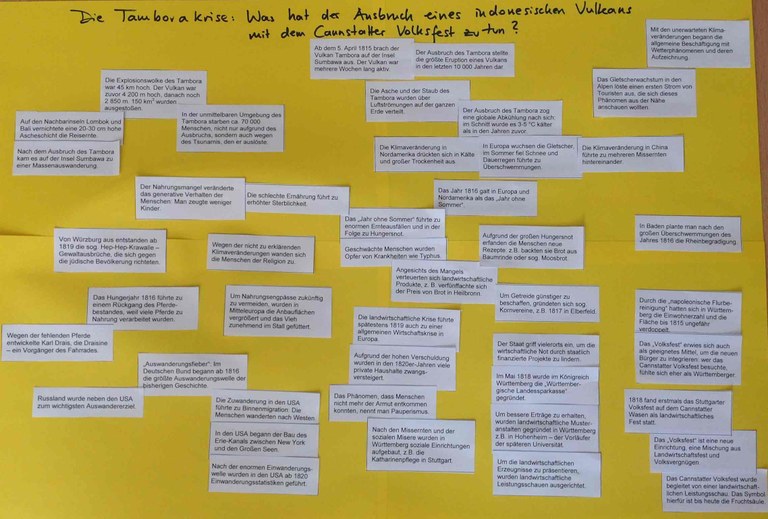 Die Tamborakrise: Was hat der Ausbruch eines indonesischen Vulkans
mit dem Cannstatter Volksfest zu tun?
Ab dem 5. April 1815 brach der
Vulkan Tambora auf der Insel
Sumbawa aus. Der Vulkan war
mehrere Wochen lang aktiv.
Der Ausbruch des Tambora stellte
die größte Eruption eines Vulkans
in den letzten 10 000 Jahren dar
Mit den unerwarteten Klima-
veränderungen begann die
allgemeine Beschäftigung mit
Wetterphänomenen und deren
Aufzeichnung.
Die Explosionswolke des Tambora
war 45 km hoch. Der Vulkan war
zuvor 4 200 m hoch, danach noch
2 850 m. 150 km³ wurden
ausgestoßen.
Die Asche und der Staub des
Tambora wurden über
Luftströmungen auf der ganzen
Erde verteilt.
Das Gletscherwachstum in den
Alpen löste einen ersten Strom von
Touristen aus, die sich dieses
Phänomen aus der Nähe
anschauen wollten.
Auf den Nachbarinseln Lombok und
Bali vernichtete eine 20-30 cm hohe
Ascheschicht die Reisernte.
In der unmittelbaren Umgebung des
Tambora starben ca. 70 000
Menschen, nicht nur aufgrund des
Ausbruchs, sondern auch wegen
des Tsunamis, den er auslöste.
Der Ausbruch des Tambora zog
eine globale Abkühlung nach sich.
Im Schnitt wurde es 3-5 °C kälter
als in den Jahren zuvor.
Nach dem Ausbruch des Tambora
kam es auf der Insel Sumbawa zu
einer Massenauswanderung.
Die Klimaveränderung in
Nordamerika drückten sich in Kälte
und großer Trockenheit aus.
In Europa wuchsen die Gletscher,
im Sommer fiel Schnee und
Dauerregen führte zu
Überschwemmungen.
Die Klimaveränderung in China
führte zu mehreren Missernten
hintereinander.
Der Nahrungsmangel veränderte
das generative Verhalten der
Menschen: Man zeugte weniger
Kinder.
Die schlechte Ernährung führt zu
erhöhter Sterblichkeit.
Das Jahr 1816 galt in Europa und
Nordamerika als das „Jahr ohne
Sommer“.
Das „Jahr ohne Sommer“ führte zu
enormen Ernteausfällen und in der
Folge zu Hungersnot.
Von Würzburg aus entstanden ab
1819 die sog. Hep-Hep-Krawalle –
Gewaltausbrüche, die sich gegen
die jüdische Bevölkerung richteten.
Wegen der nicht zu erklärenden
Klimaveränderungen wandten sich
die Menschen der Religion zu.
Geschwächte Menschen wurden
Opfer von Krankheiten wie Typhus.
Aufgrund der großen Hungersnot
erfanden die Menschen neue
Rezepte, z.B. backten sie Brot aus
Baumrinde oder sog. Moosbrot.
In Baden plante man nach den
großen Überschwemmungen des
Jahres 1816 die Rheinbegradigung.
Angesichts des Mangels
verteuerten sich landwirtschaftliche
Produkte, z. B. verfünffachte sich
der Preis von Brot in Heilbronn.
Das Hungerjahr 1816 führte zu
einem Rückgang des Pferde-
bestandes, weil viele Pferde zu
Nahrung verarbeitet wurden.
Um Nahrungsengpässe zukünftig
zu vermeiden, wurden in
Mitteleuropa die Anbauflächen
vergrößert und das Vieh
zunehmend im Stall gefüttert.
Um Getreide günstiger zu
beschaffen, gründeten sich sog.
Kornvereine, z.B. 1817 in Elberfeld.
Durch die „napoleonische Flurbe-
reinigung“ hatten sich in Württem-
berg die Einwohnerzahl und die
Fläche bis 1815 ungefähr
verdoppelt.
Die landwirtschaftliche Krise führte
spätestens 1819 auch zu einer
allgemeinen Wirtschaftskrise in
Europa.
Wegen der fehlenden Pferde
entwickelte Karl Drais, die Draisine
– ein Vorgänger des Fahrrades.
Der Staat griff vielerorts ein, um die
wirtschaftliche Not durch staatlich
finanzierte Projekte zu lindern.
Das „Volksfest“ erwies sich auch
als geeignetes Mittel, um die neuen
Bürger zu integrieren: wer das
Cannstatter Volksfest besuchte,
fühlte sich eher als Württemberger.
„Auswanderungsfieber“: Im
Deutschen Bund begann ab 1816
die größte Auswanderungswelle der
bisherigen Geschichte.
Aufgrund der hohen Verschuldung
wurden in den 1820er-Jahren viele
private Haushalte zwangs-
versteigert.
Im Mai 1818 wurde im Königreich
Württemberg die „Württember-
gische Landessparkasse“
gegründet.
Russland wurde neben den USA
zum wichtigsten Auswandererziel.
Die Zuwanderung in den USA
führte zu Binnenmigration: Die
Menschen wanderten nach Westen.
Das Phänomen, dass Menschen
nicht mehr der Armut entkommen
konnten, nennt man Pauperismus.
1818 fand erstmals das Stuttgarter
Volksfest auf dem Cannstatter
Wasen als landwirtschaftliches
Fest statt.
Um bessere Erträge zu erhalten,
wurden landwirtschaftliche Muster-
anstalten gegründet in Württemberg
z.B. in Hohenheim – der Vorläufer
der späteren Universität.
In den USA begann der Bau des
Erie-Kanals zwischen New York
und den Großen Seen.
Nach den Missernten und der
sozialen Misere wurden in
Württemberg soziale Einrichtungen
aufgebaut, z.B. die
Katharinenpflege in Stuttgart.
Das „Volksfest“ ist eine neue
Einrichtung, eine Mischung aus
Landwirtschaftsfest und
Volksvergnügen
Nach der enormen Einwanderungs-
welle wurden in den USA ab 1820
Einwanderungsstatistiken geführt.
Um die landwirtschaftlichen
Erzeugnisse zu präsentieren,
wurden landwirtschaftliche
Leistungsschauen ausgerichtet.
Das Cannstatter Volksfest wurde
begleitet von einer landwirtschaft-
lichen Leistungsschau. Das Symbol
hierfür ist bis heute die Fruchtsäule.